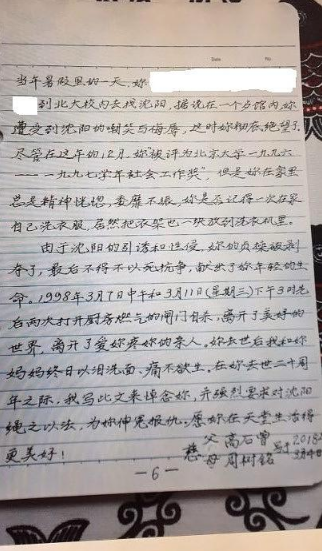 当年暑假里的一天，妳
到北大校内去找沈阳，据说在一个占馆内，妳
遭受到沈阳的嘲笑与侮辱，这时妳彻底绝望了
尽管在这年的12月，妳"被评为北京大学一九九六
——一九九七学年社会工作奖"，但是妳在家里
总是精神恍惚，萎靡不振，妳是否记得一次在家
自己洗衣服，居然把衣架也一块放到洗衣机里。
由于沈阳的引诱和性侵，妳的贞操被剥
夺了，最后不得不以死抗争，献出了妳年轻的生
命。1998年3月7日中午和3月11日(星期三)下午3时先
后两次打开厨房燃气的闸门自杀，离开了美好的
世界，离开了爱妳疼妳的亲人。妳去世后我和妳
妈妈终日以泪洗面、痛不欲生。在妳去世二十周
年之际，我写此文来悼念妳，并强烈要求对沈阳
绳之以法，为妳伸冤报仇，愿妳在天堂生活得
更美好！
慈父 高石曾
母 周树铭
写于2018年
3月
—6—